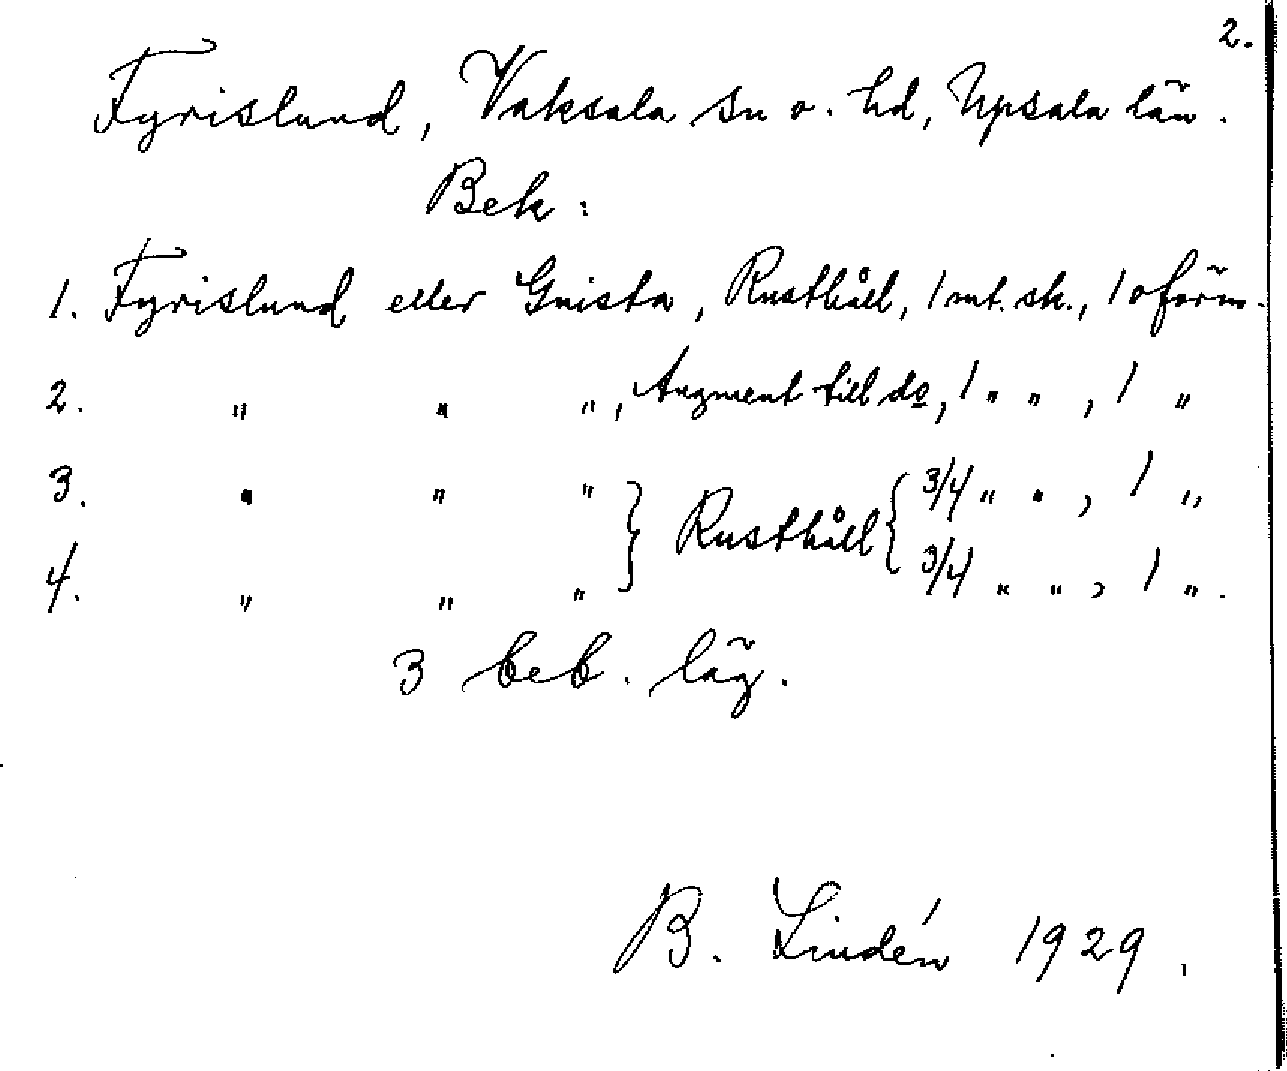 2.
Fyrislund, Vaksala sn o. hd, Upsala län.
Bek:
1. Fyrislund eller Gnista, Rusthåll, 1 mt. sk., 1 oförm.
2. " " ", Augment till do, 1 " " , 1 "
3. " " " } Rusthåll { 3/4 " " , 1 "
4. " " " } { 3/4 " " , 1 " .
3 beb. läg.
B. Lindén 1929.